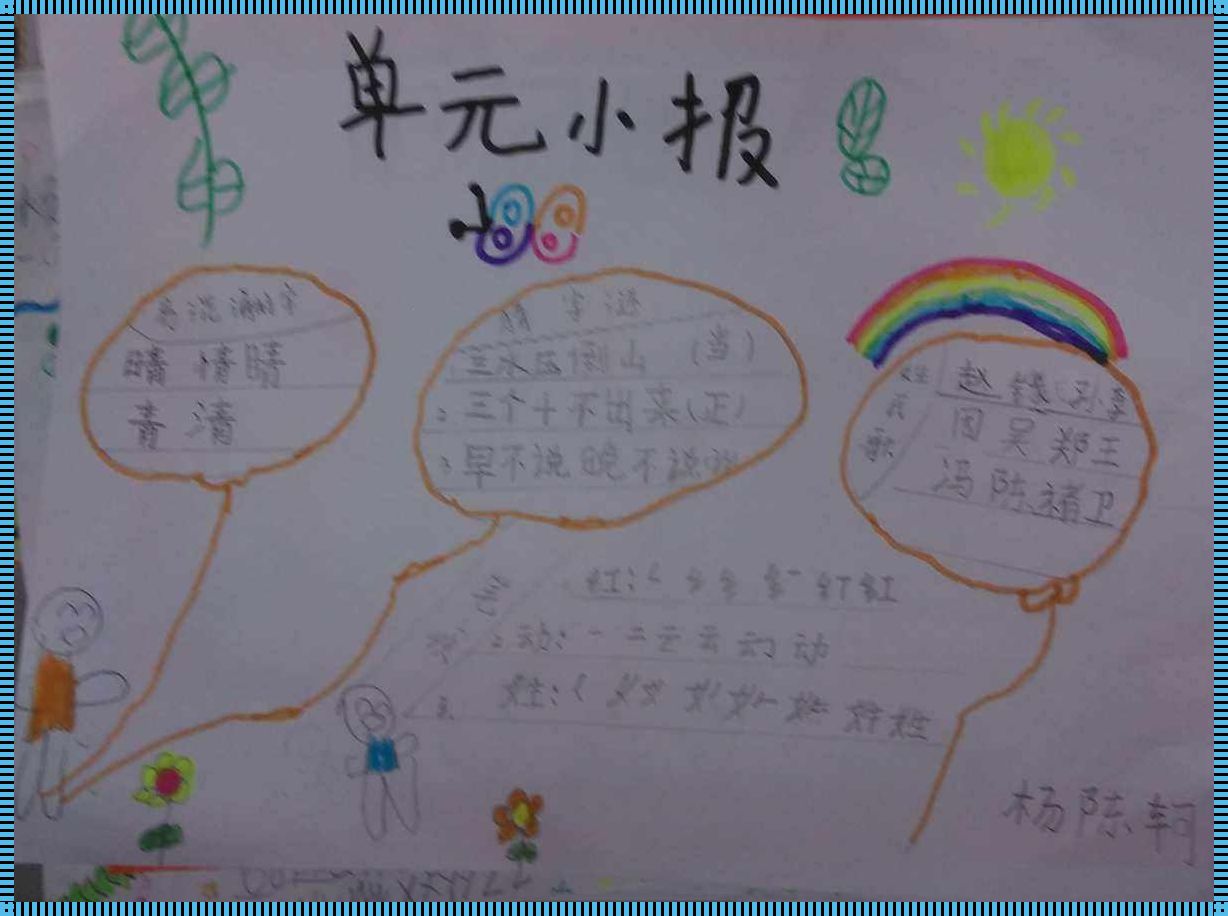 单元小报
易混淆的字
晴 情 睛
青 清
猜字谜
三水压倒山 (当)
2. 三个十不出来(正)
3. 早不说晚不说
姓氏歌
赵 钱 孙 李
周 吴 郑 王
冯 陈 褚 卫
红: 红
2. 动: 一 二 云 云 动 动
3. 姓: 姓
杨陈轲